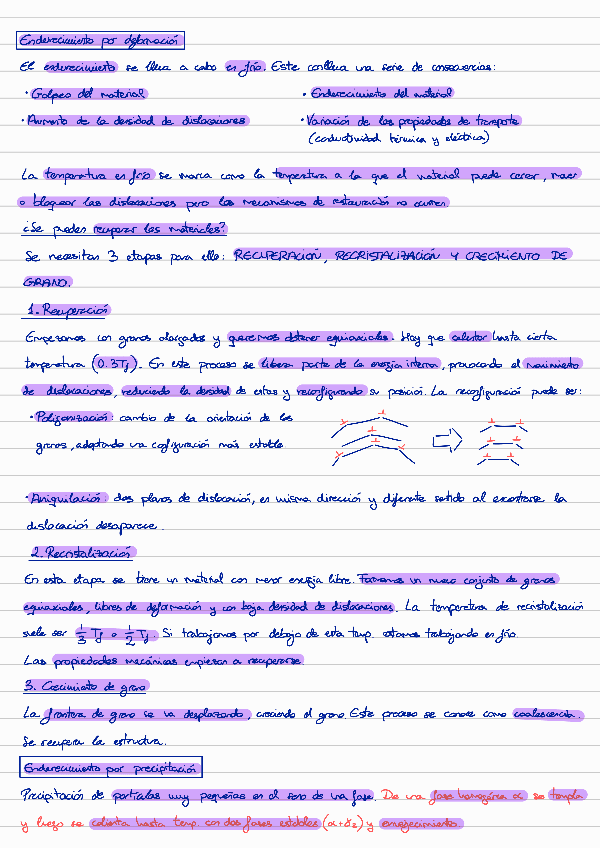 Endurecimiento por deformación
El endurecimiento se lleva a cabo en frío. Este conlleva una serie de consecuencias:
· Golpeo del material · Endurecimiento del material
· Aumento de la densidad de dislocaciones · Variación de las propiedades de transporte
(conductividad térmica y eléctrica)
La temperatura en frío se marca como la temperatura a la que el material puede crear, mover
o bloquear las dislocaciones pero los mecanismos de restauración no ocurren
¿Se pueden recuperar los materiales?
Se necesitan 3 etapas para ello: RECUPERACIÓN, RECRISTALIZACIÓN Y CRECIMIENTO DE
GRANO.
1. Recuperación
Empezamos con granos alargados y queremos obtener equiaxiales. Hay que calentar hasta cierta
temperatura (0.3Tf). En este proceso se libera parte de la energía interna, provocando el movimiento
de dislocaciones, reduciendo la densidad de estas y reconfigurando su posición. La reconfiguración puede ser:
· Poligonización: cambio de la orientación de los
granos, adoptando una configuración más estable.
· Aniquilación dos planos de dislocación, en misma dirección y diferente sentido al encontrarse la
dislocación desaparece.
2. Recristalización
En esta etapa se tiene un material con menor energía libre. Formamos un nuevo conjunto de granos
equiaxiales, libres de deformación y con baja densidad de dislocaciones. La temperatura de recristalización
suele ser 1/3 Tf o 1/2 Tf. Si trabajamos por debajo de esta temp. estamos trabajando en frío.
Las propiedades mecánicas empiezan a recuperarse
3. Crecimiento de grano
La frontera de grano se va desplazando, creciendo el grano. Este proceso se conoce como coalescencia.
Se recupera la estructura.
Endurecimiento por precipitación
Precipitación de partículas muy pequeñas en el seno de una fase. De una fase homogénea α se templa
y luego se calienta hasta temp. con dos fases estables (α+γ2) y envejecimiento